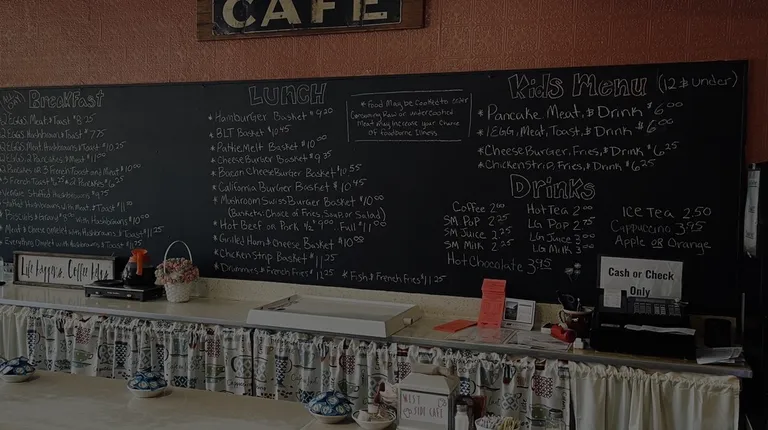 CAFE
Breakfast
2 Eggs, Meat & Toast $8.25
2 Eggs Hashbrowns & Toast $7.75
2 Eggs Meat Hashbrowns & Toast $10.25
2 Eggs, 2 Pancakes & Meat $11.00
Pancakes or French Toast and Meat $10.00
Hashbrowns $10.00
Meat & Cheese Omelet with Hashbrowns & Toast $11.25
Everything Omelet with Hashbrowns & Toast
LUNCH
* Hamburger Basket $9.20
* BLT Basket $10.45
* Pattie Melt Basket $10.00
* Cheese Burger Basket $9.35
* Bacon Cheese Burger Basket $10.55
* California Burger Basket $10.45
* Mushroom Swiss Burger Basket $10.00
(Baskets: Choice of Fries, Soup, or Salad)
* Hot Beef or Pork 1/2 $9.00 - Full $11.00
* Grilled Ham & Cheese Basket $10.00
* Chicken Strip Basket $11.25
* Drummies & French Fries $11.25
* Fish & French Fries $11.25
* Food May be Cooked to order
Consuming Raw or undercooked
Meat May Increase your Chance
of foodborne Illness
Kids Menu (12 & under)
* Pancake Meat, & Drink $6.00
* 1 Egg, Meat, Toast, & Drink $6.00
* Cheese Burger, Fries, & Drink $6.25
* Chicken Strip, Fries, & Drink $6.25
Drinks
Coffee 2.00
SM Pop 2.25
SM Juice 2.25
SM Milk 2.25
Hot Chocolate 3.95
Hot Tea 2.00
LG Pop 2.75
LG Juice 3.00
LG Milk 3.00
Ice Tea 2.50
Cappuccino 3.95
Apple or Orange
Life happens, Coffee helps
Cash or Check
Only
WEST
SIDE CAFE